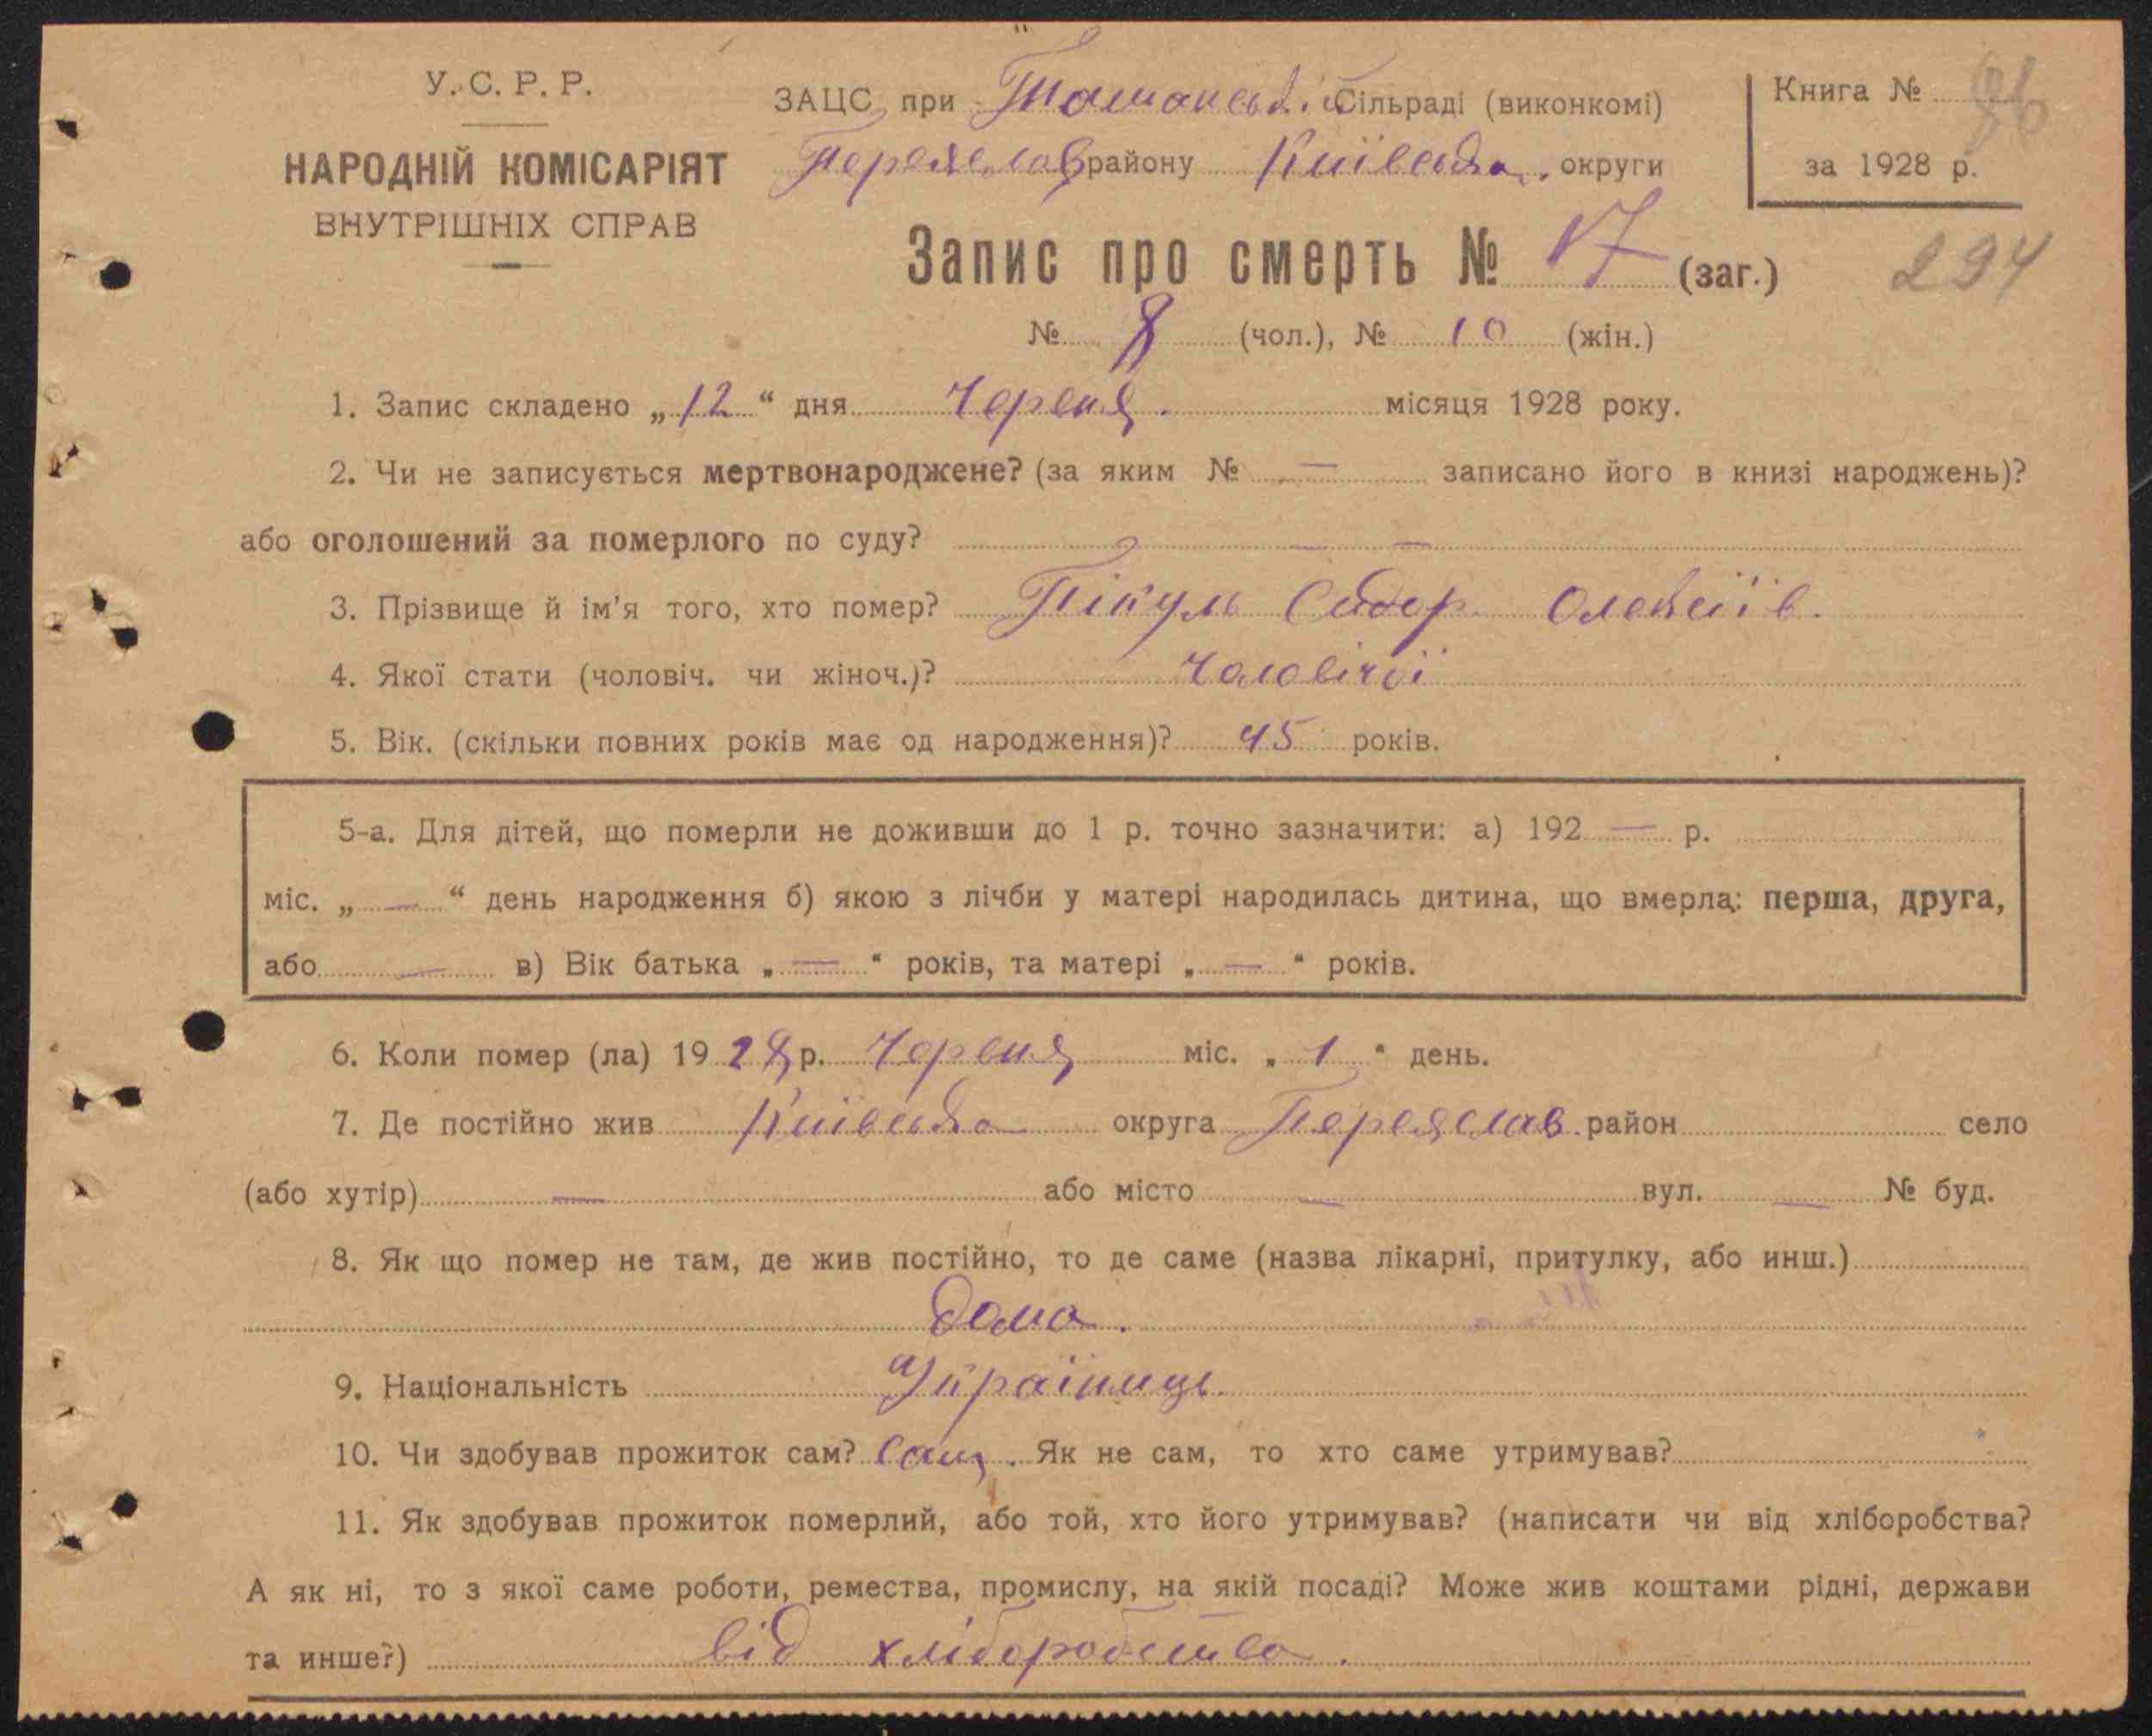 У. С. Р. Р.
НАРОДНІЙ КОМІСАРІЯТ
ВНУТРІШНІХ СПРАВ
ЗАЦС при Ташанській Сільраді (виконкомі)
Переяслав району Київська округи
Книга №
за 1928 р.
Запис про смерть № 17 (заг.)
294
№ 8 (чол.), № 10 (жін.)
1. Запис складено „12“ дня Червня. місяця 1928 року.
2. Чи не записується мертвонароджене? (за яким № — записано його в книзі народжень)?
або оголошений за померлого по суду? — —
3. Прізвище й ім'я того, хто помер? Пікуль Сидор Олексіїв.
4. Якої стати (чоловіч. чи жіноч.)? Чоловічої
5. Вік. (скільки повних років має од народження)? 45 років.
5-а. Для дітей, що померли не доживши до 1 р. точно зазначити: а) 192 — р.
міс. „ — “ день народження б) якою з лічби у матері народилась дитина, що вмерла: перша, друга,
або — в) Вік батька „ — “ років, та матері „ — “ років.
6. Коли помер (ла) 1928 р. Червня міс. „ 1 “ день.
7. Де постійно жив Київська округа Переяслав район село
(або хутір) — або місто — вул. — № буд.
8. Як що помер не там, де жив постійно, то де саме (назва лікарні, притулку, або инш.)
дома.
9. Національність Українець.
10. Чи здобував прожиток сам? Сам. Як не сам, то хто саме утримував?
11. Як здобував прожиток померлий, або той, хто його утримував? (написати чи від хліборобства?
А як ні, то з якої саме роботи, ремества, промислу, на якій посаді? Може жив коштами рідні, держави
та инше?) від хліборобства.